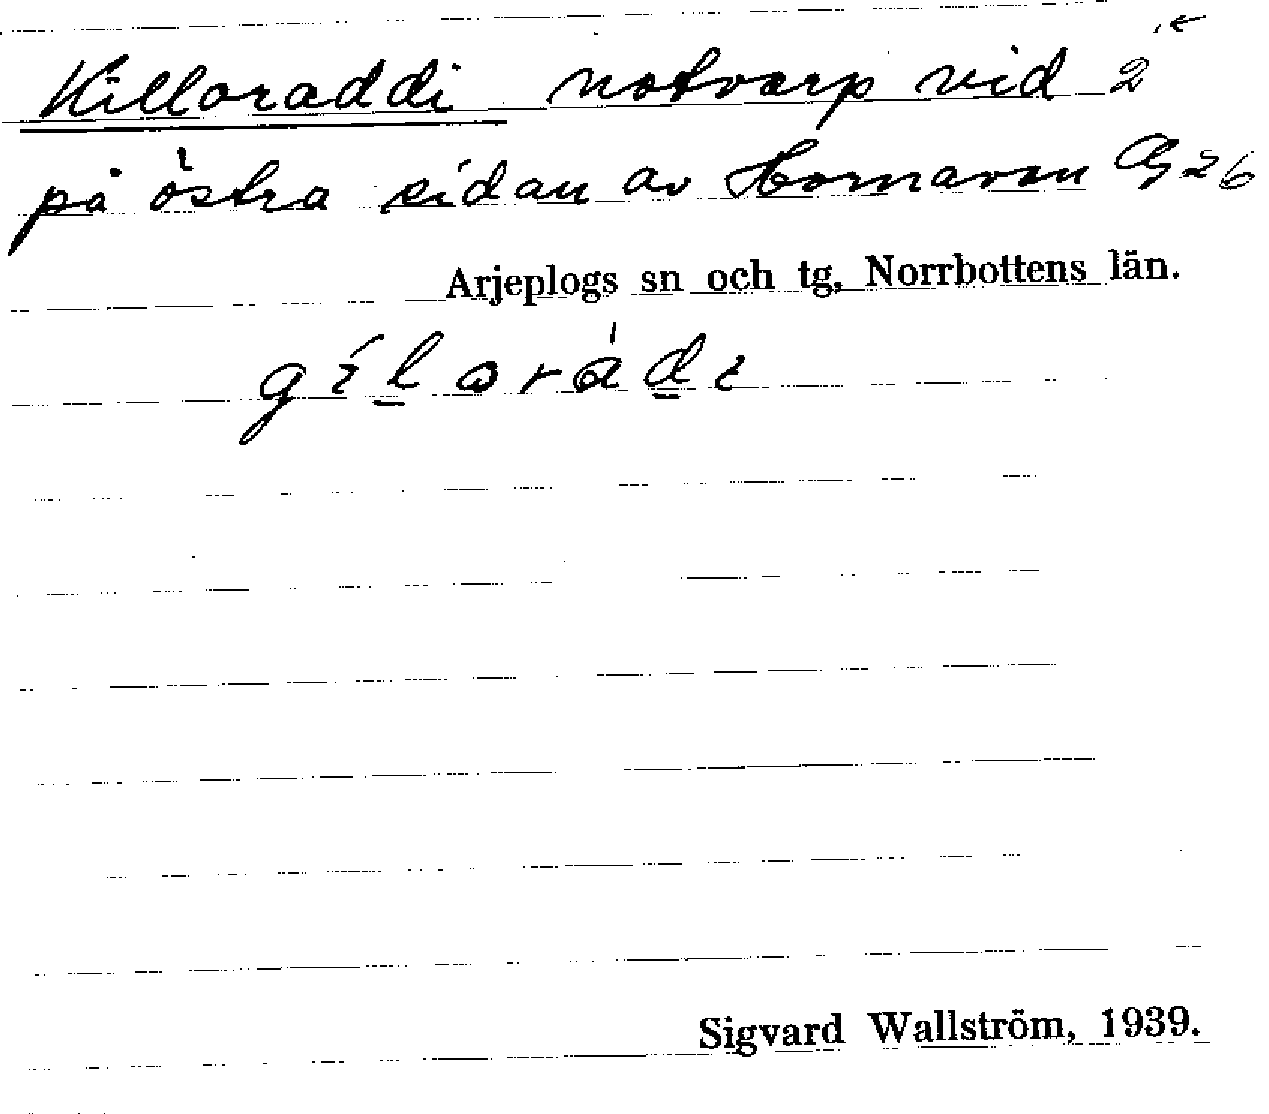 Killoraddi notvarp vid 2
på östra sidan av Hornavan
Arjeplogs sn och tg, Norrbottens län.
gílorádi
Sigvard Wallström, 1939.